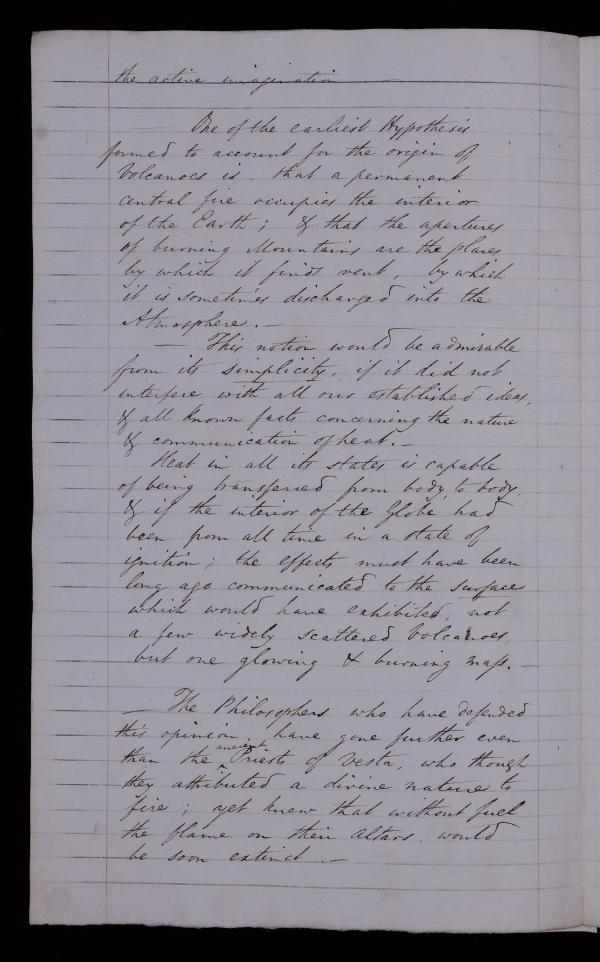 the active imagination —
— One of the earliest Hypothesis
formed to account for the origin of
Volcanoes is, that a permanent
central fire occupies the interior
of the Earth; & that the apertures
of burning Mountains are the places
by which it finds vent, by which
it is sometimes discharged into the
Atmosphere. —
— This notion would be admirable
from its simplicity, if it did not
interfere with all our established ideas,
& all known facts concerning the nature
& communication of heat. —
Heat in all its states is capable
of being transferred from body to body,
& if the interior of the Globe had
been from all time in a state of
ignition; the effects must have been
long ago communicated to the surface
which would have exhibited, not
a few widely scattered Volcanoes,
but one glowing & burning mass. —
— The Philosophers who have defended
this opinion, have gone further even
than the ancient Priests of Vesta, who though
they attributed a divine nature to
fire; yet knew that without fuel
the flame on their Altars would
be soon extinct. —